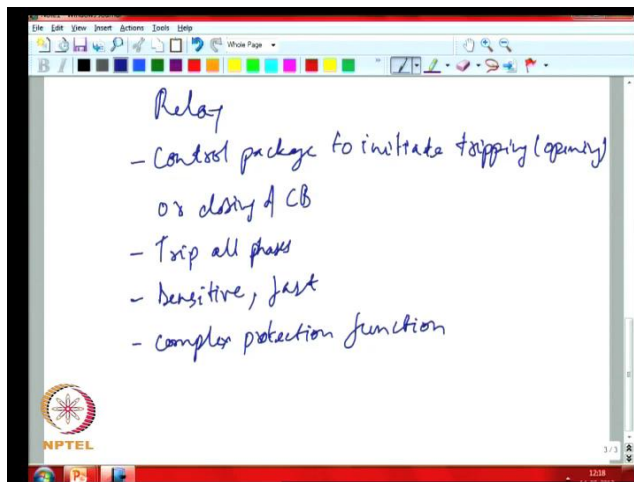 File Edit View Insert Actions Tools Help
Whole Page
B I
Relay
- Control package to initiate tripping (opening)
or closing of CB
- Trip all phases
- Sensitive, fast
- complex protection function
NPTEL
3/3
12:18